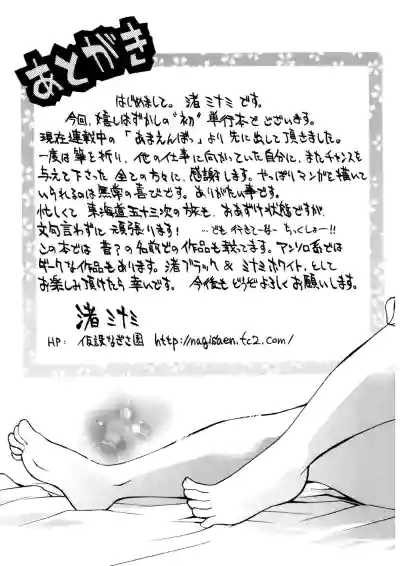 あとがき
はじめまして。渚ミナミです。
今回、嬉しはずかしの"初"単行本でございます。
現在連載中の「あまえんぼっ」より先に出して頂きました。
一度は筆を折り、他の仕事に向かっていた自分に、またチャンスを
与えて下さった全ての方々に、感謝します。やっぱりマンガを描いて
いられるのは無常の喜びです。ありがたい事です。
忙しくて東海道五十三次の旅も、おあずけ状態ですが、
文句言わずに頑張ります! …でも行きてーなー ちっくしょー!!
この本では昔?の名前での作品も載ってます。アンソロ系では
ダークな作品もあります。渚ブラック&ミナミホワイト、として
お楽しみ頂けたら幸いです。今後もどうぞよろしくお願いします。
渚ミナミ
HP: 仮設なぎさ園 http://nagisaen.fc2.com/